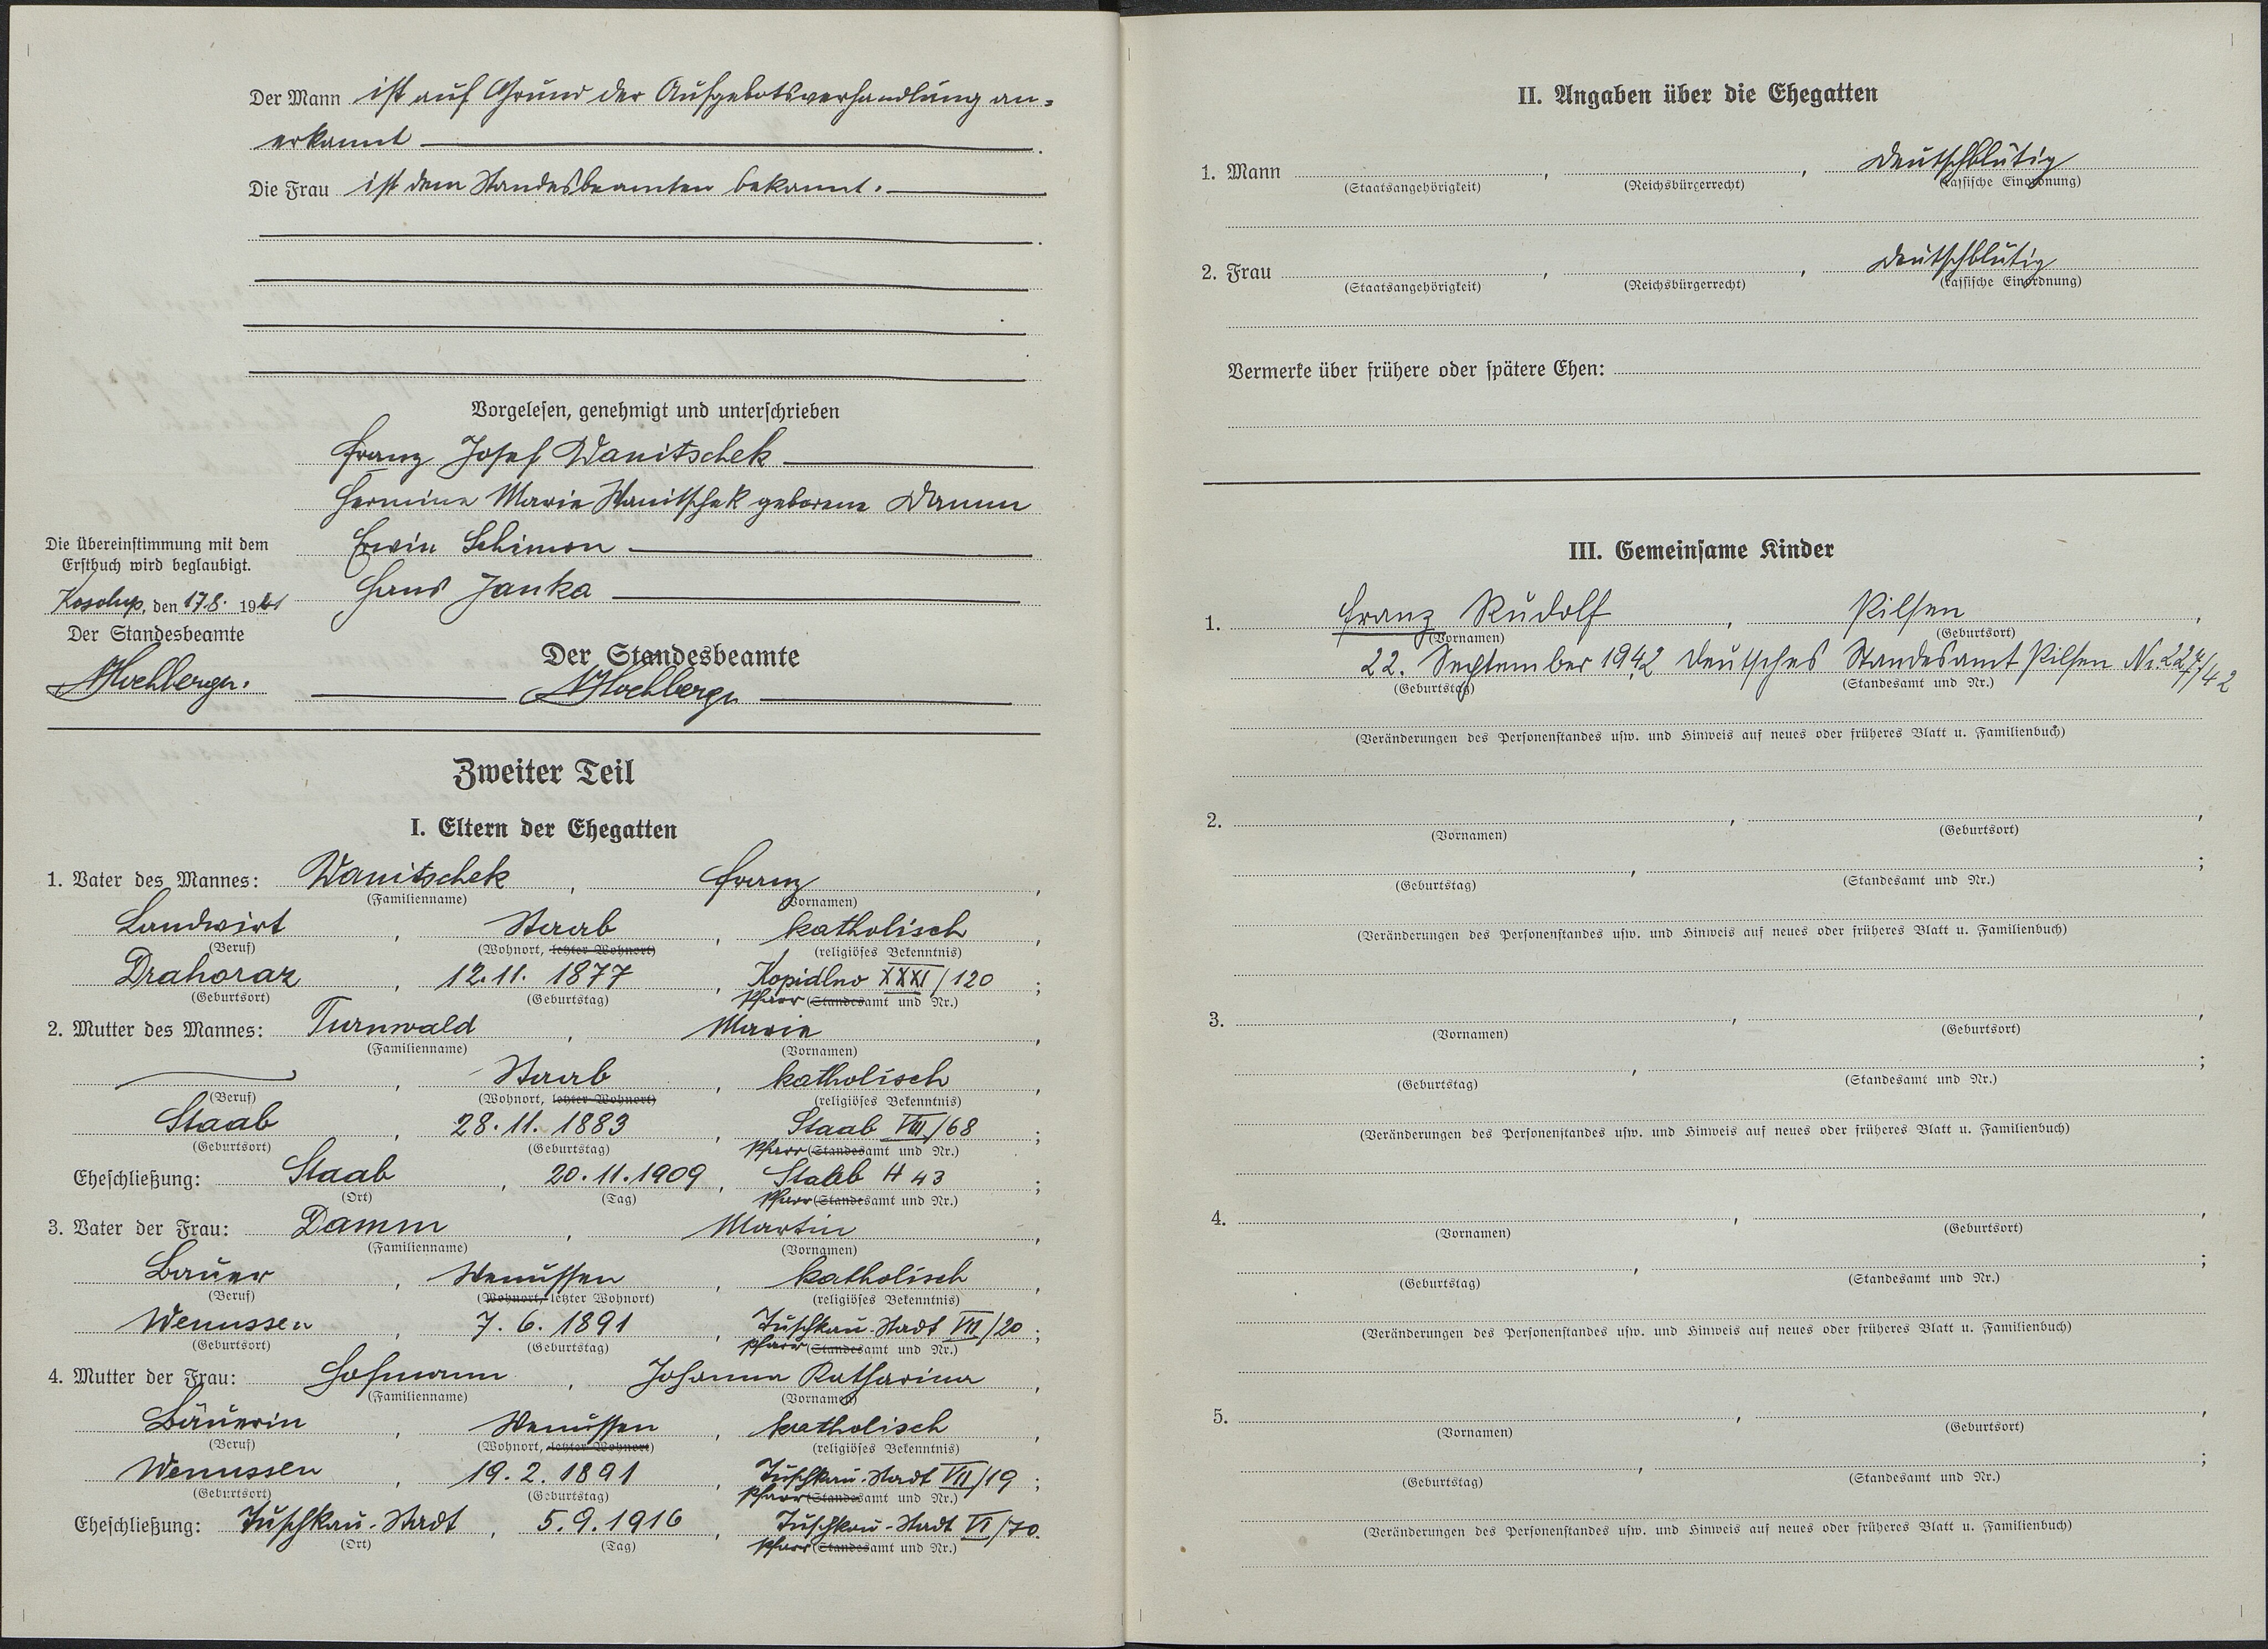 Der Mann ist auf Grund der Aufgebotsverhandlung an=
erkannt
Die Frau ist dem Standesbeamten bekannt.
Vorgelesen, genehmigt und unterschrieben
Franz Josef Wanitschek
Hermine Marie Wanitschek geborene Damm
Erwin Schimon
Hans Janka
Die Übereinstimmung mit dem
Erstbuch wird beglaubigt.
den 17.8. 1941
Der Standesbeamte
Der Standesbeamte
Zweiter Teil
I. Eltern der Ehegatten
1. Vater des Mannes: Wanitschek, Franz,
(Familienname) (Vornamen)
Landwirt, Staab, katholisch,
(Beruf) (Wohnort, letzter Wohnort) (religiöses Bekenntnis)
Drahoraz, 12.11.1877, Kopidlno XXXI/120;
(Geburtsort) (Geburtstag) Pfarr (Standesamt und Nr.)
2. Mutter des Mannes: Turnwald, Marie,
(Familienname) (Vornamen)
, Staab, katholisch,
(Beruf) (Wohnort, letzter Wohnort) (religiöses Bekenntnis)
Staab, 28.11.1883, Staab VIII/68;
(Geburtsort) (Geburtstag) Pfarr (Standesamt und Nr.)
Eheschließung: Staab, 20.11.1909, Staab 43;
(Ort) (Tag) Pfarr (Standesamt und Nr.)
3. Vater der Frau: Damm, Martin,
(Familienname) (Vornamen)
Bauer, Wenussen, katholisch,
(Beruf) (Wohnort, letzter Wohnort) (religiöses Bekenntnis)
Wenussen, 7.6.1891, Tuschkau-Stadt VII/20;
(Geburtsort) (Geburtstag) Pfarr (Standesamt und Nr.)
4. Mutter der Frau: Hofmann, Johanna Katharina,
(Familienname) (Vornamen)
Bäuerin, Wenussen, katholisch,
(Beruf) (Wohnort, letzter Wohnort) (religiöses Bekenntnis)
Wenussen, 19.2.1891, Tuschkau-Stadt VII/19;
(Geburtsort) (Geburtstag) Pfarr (Standesamt und Nr.)
Eheschließung: Tuschkau-Stadt, 5.9.1916, Tuschkau-Stadt VI/70.
(Ort) (Tag) Pfarr (Standesamt und Nr.)
II. Angaben über die Ehegatten
1. Mann , , deutschblütig
(Staatsangehörigkeit) (Reichsbürgerrecht) (rassische Einordnung)
2. Frau , , deutschblütig
(Staatsangehörigkeit) (Reichsbürgerrecht) (rassische Einordnung)
Vermerke über frühere oder spätere Ehen:
III. Gemeinsame Kinder
1. Franz Rudolf, Pilsen,
(Vornamen) (Geburtsort)
22. September 1942 Deutsches Standesamt Pilsen Nr. 227/42
(Geburtstag) (Standesamt und Nr.)
(Veränderungen des Personenstandes usw. und Hinweis auf neues oder früheres Blatt u. Familienbuch)
2. , ,
(Vornamen) (Geburtsort)
, ;
(Geburtstag) (Standesamt und Nr.)
(Veränderungen des Personenstandes usw. und Hinweis auf neues oder früheres Blatt u. Familienbuch)
3. , ,
(Vornamen) (Geburtsort)
, ;
(Geburtstag) (Standesamt und Nr.)
(Veränderungen des Personenstandes usw. und Hinweis auf neues oder früheres Blatt u. Familienbuch)
4. , ,
(Vornamen) (Geburtsort)
, ;
(Geburtstag) (Standesamt und Nr.)
(Veränderungen des Personenstandes usw. und Hinweis auf neues oder früheres Blatt u. Familienbuch)
5. , ,
(Vornamen) (Geburtsort)
, ;
(Geburtstag) (Standesamt und Nr.)
(Veränderungen des Personenstandes usw. und Hinweis auf neues oder früheres Blatt u. Familienbuch)